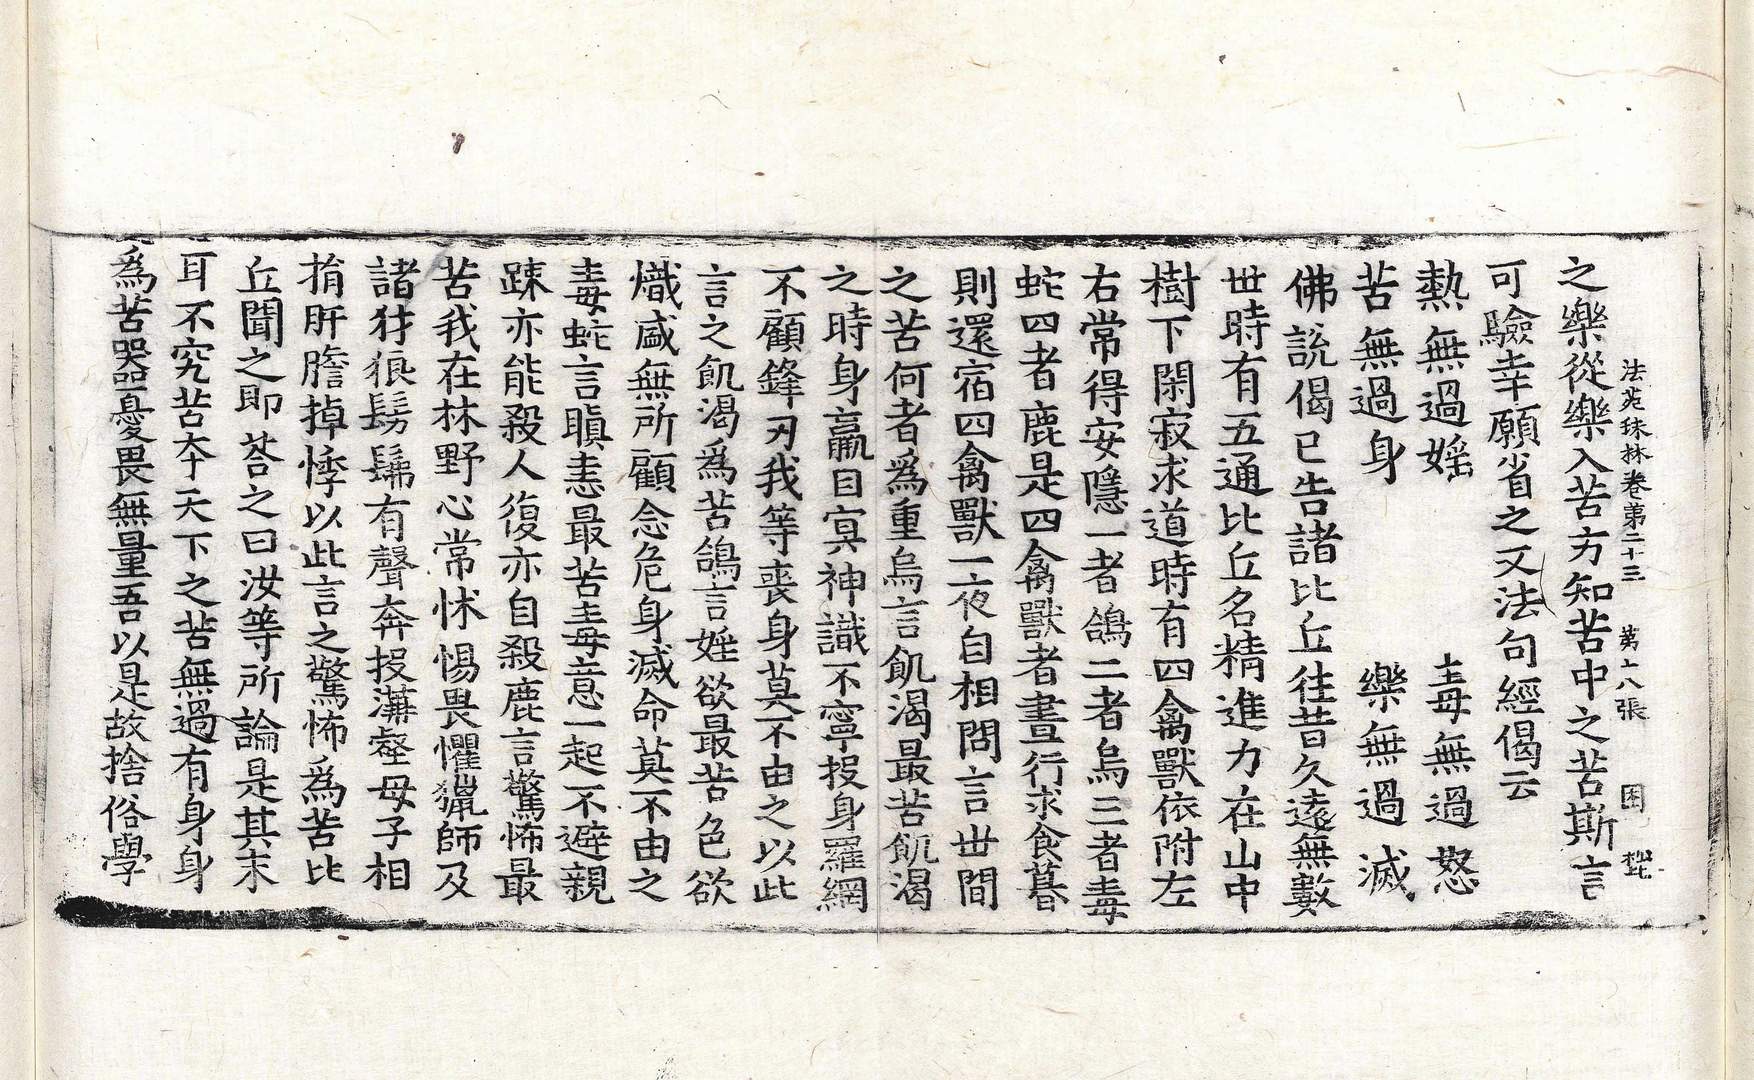 法苑珠林卷第二十三 第十八張 困
之樂從樂入苦方知苦中之苦斯言
可驗幸願省之又法句經偈云
熱無過婬 毒無過怒
苦無過身 樂無過滅
佛說偈已告諸比丘往昔久遠無數
世時有五通比丘名精進力在山中
樹下閑寂求道時有四禽獸依附左
右常得安隱一者鴿二者烏三者毒
蛇四者鹿是四禽獸者晝行求食暮
則還宿四禽獸一夜自相問言世間
之苦何者為重烏言飢渴最苦飢渴
之時身羸目冥神識不寧投身羅網
不顧鋒刃我等喪身莫不由之以此
言之飢渴為苦鴿言婬欲最苦色欲
熾盛無所顧念危身滅命莫不由之
毒蛇言瞋恚最苦毒意一起不避親
踈亦能殺人復亦自殺鹿言驚怖最
苦我在林野心常怵惕畏懼獵師及
諸犲狼髣髴有聲奔投溝壑母子相
捐肝膽掉悸以此言之驚怖為苦比
丘聞之即荅之曰汝等所論是其末
耳不究苦本天下之苦無過有身身
為苦器憂畏無量吾以是故捨俗學